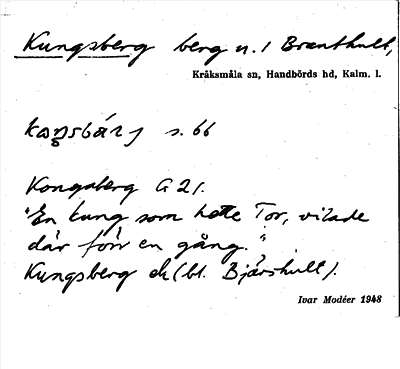 Kungsberg berg n. 1 Brännthult,
Kråksmåla sn, Handbörds hd, Kalm. l.
s. 66
Kongsberg G 21.
"En kung som hette Tor, vilade
där förr en gång."
Kungsberg ek (bl. Bjärshult).
Ivar Modéer 1948